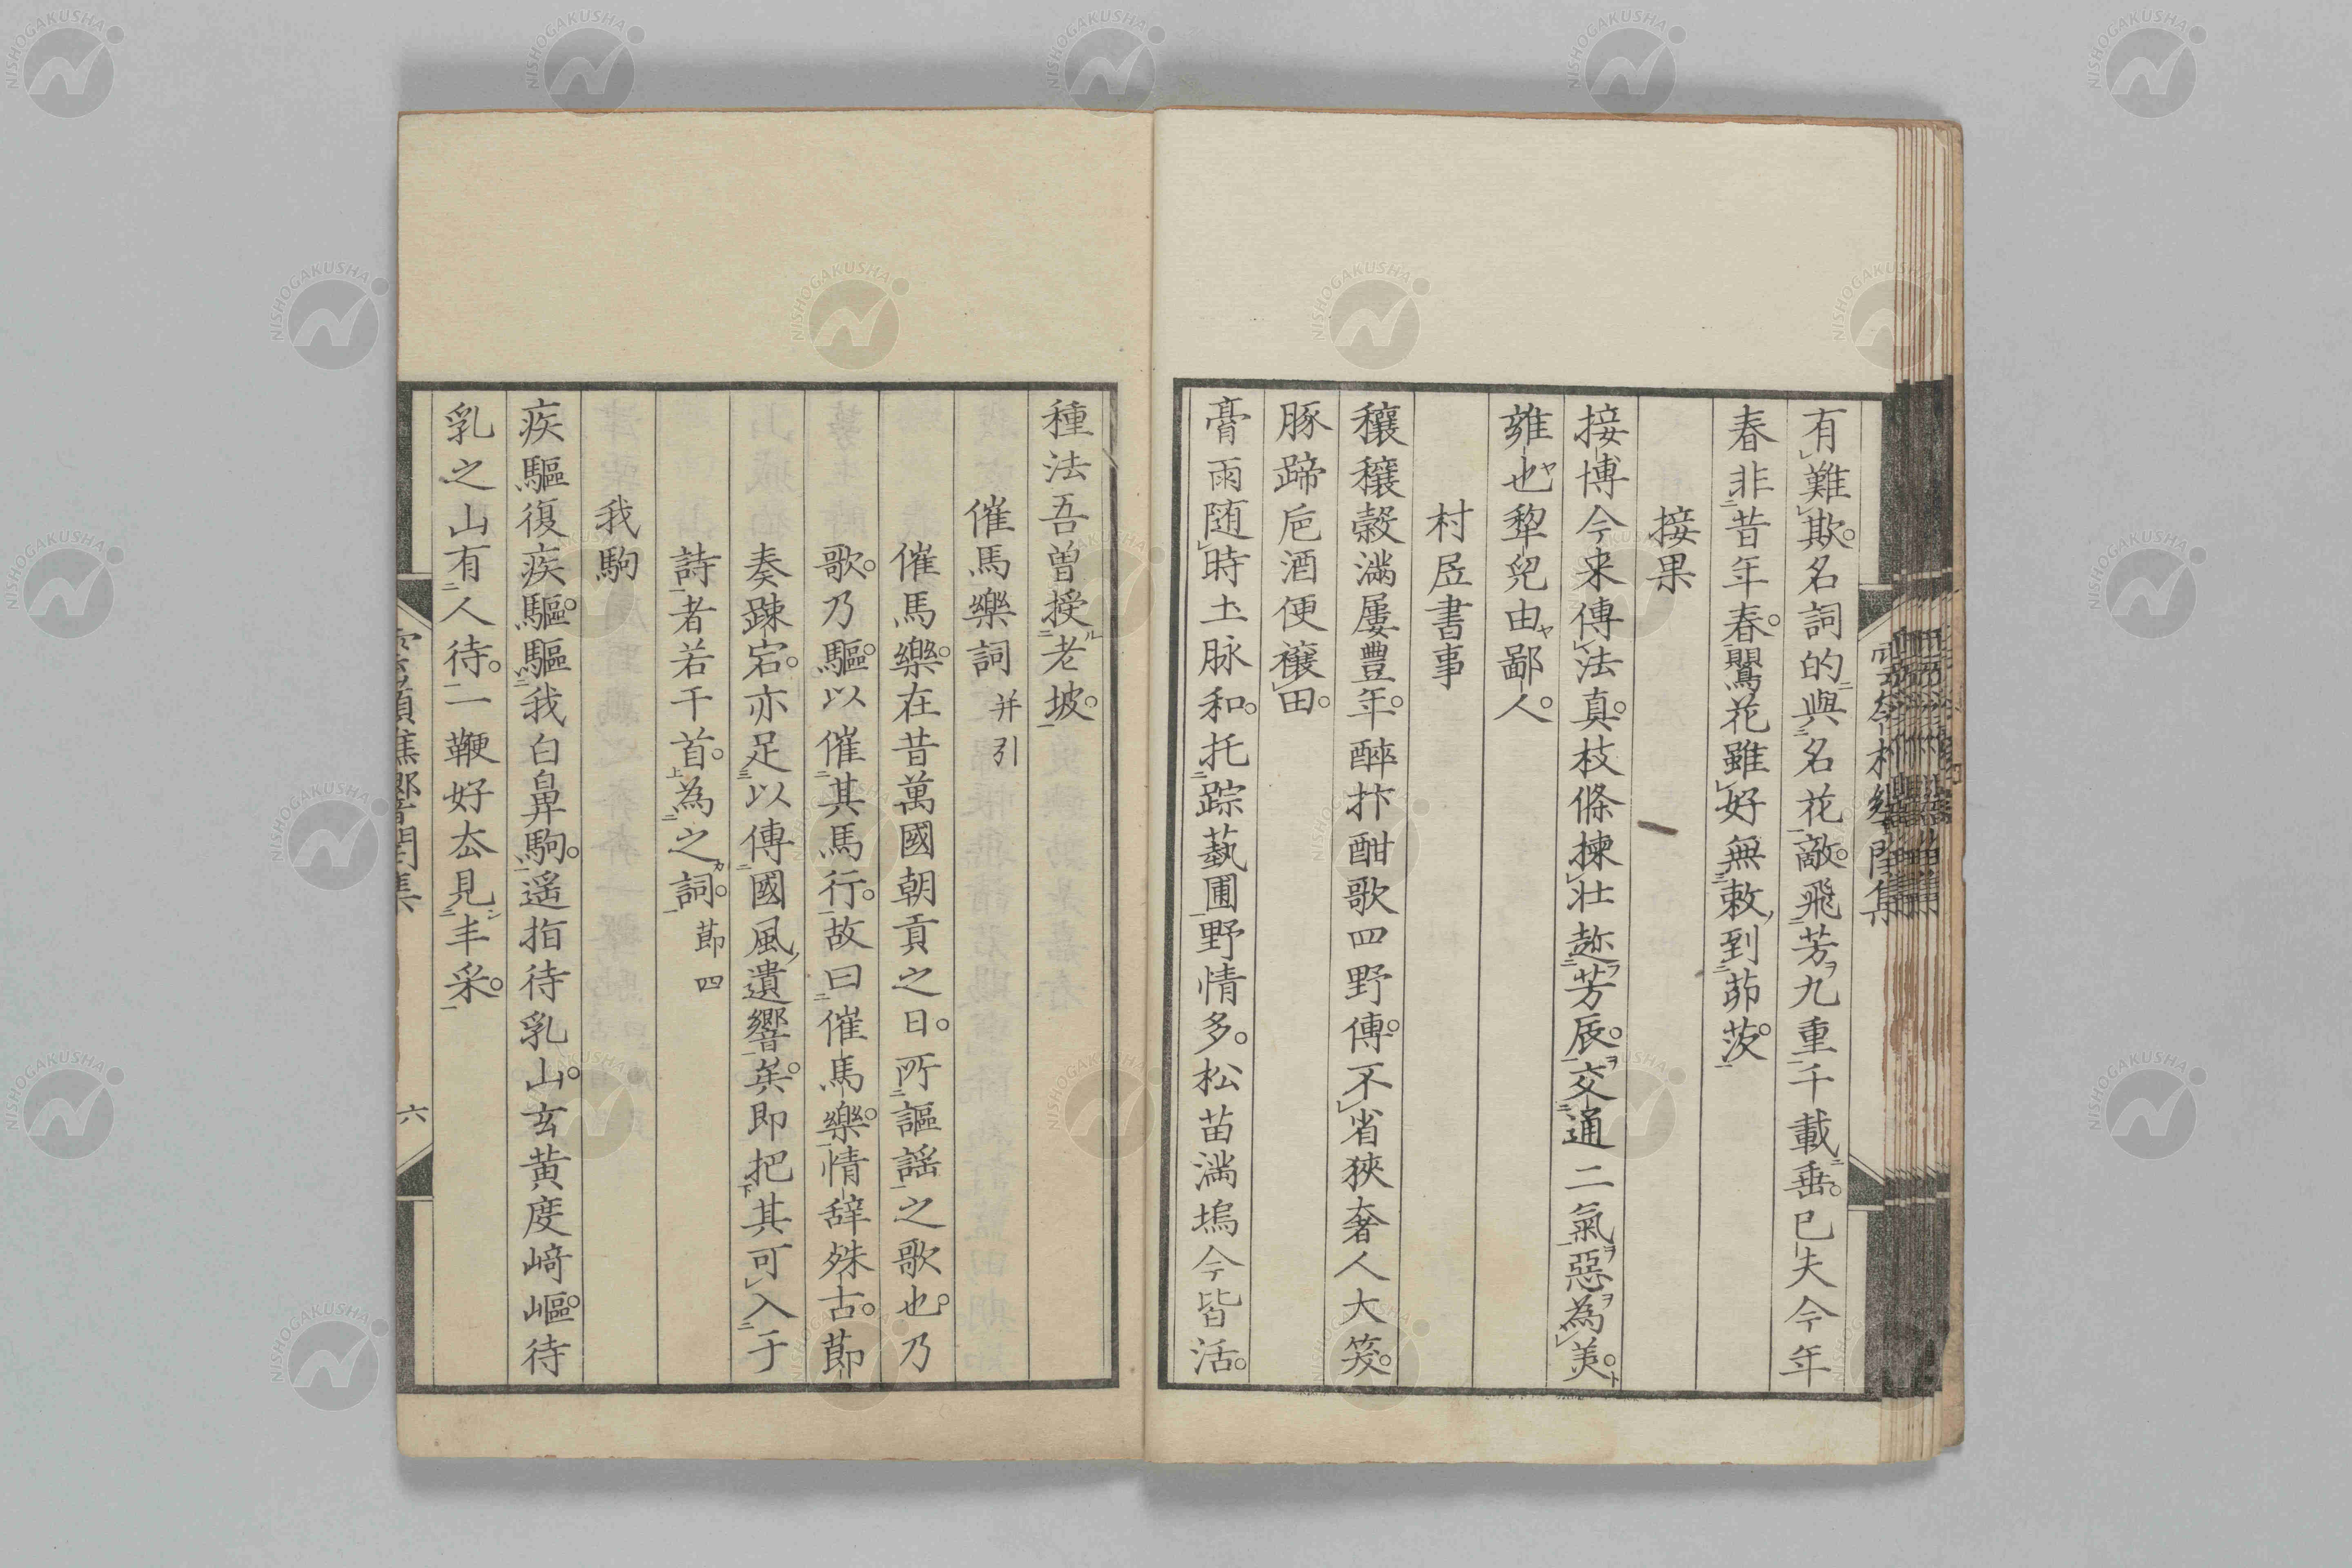 有難欺名詞的與名花敵飛芳九重千載垂已夫今年
春非昔年春鶯花雖好無敕到茆茨
接果
接博今来傳法真枝條揀壮趂芳辰交通二氣惡為美
雍也犂兒由鄙人
村居書事
穰穰穀滿屢豊年醉抃酣歌四野傳不省狹奢人大笑
豚蹄巵酒便穰田
膏雨随時土脉和托踪藝圃野情多松苗満塢今皆活
種法吾曽授老坡
催馬樂詞 并引
催馬樂在昔萬國朝貢之日所謳謡之歌也乃
歌乃驅以催其馬行故曰催馬樂情辞殊古節
奏踈宕亦足以傳國風遺響矣即把其可入于
詩者若干首為之詞 節四
我駒
疾驅復疾驅驅我白鼻駒遥指待乳山玄黄度﨑嶇待
乳之山有人待一鞭好去見丰采
六
NISHOGAKUSHA